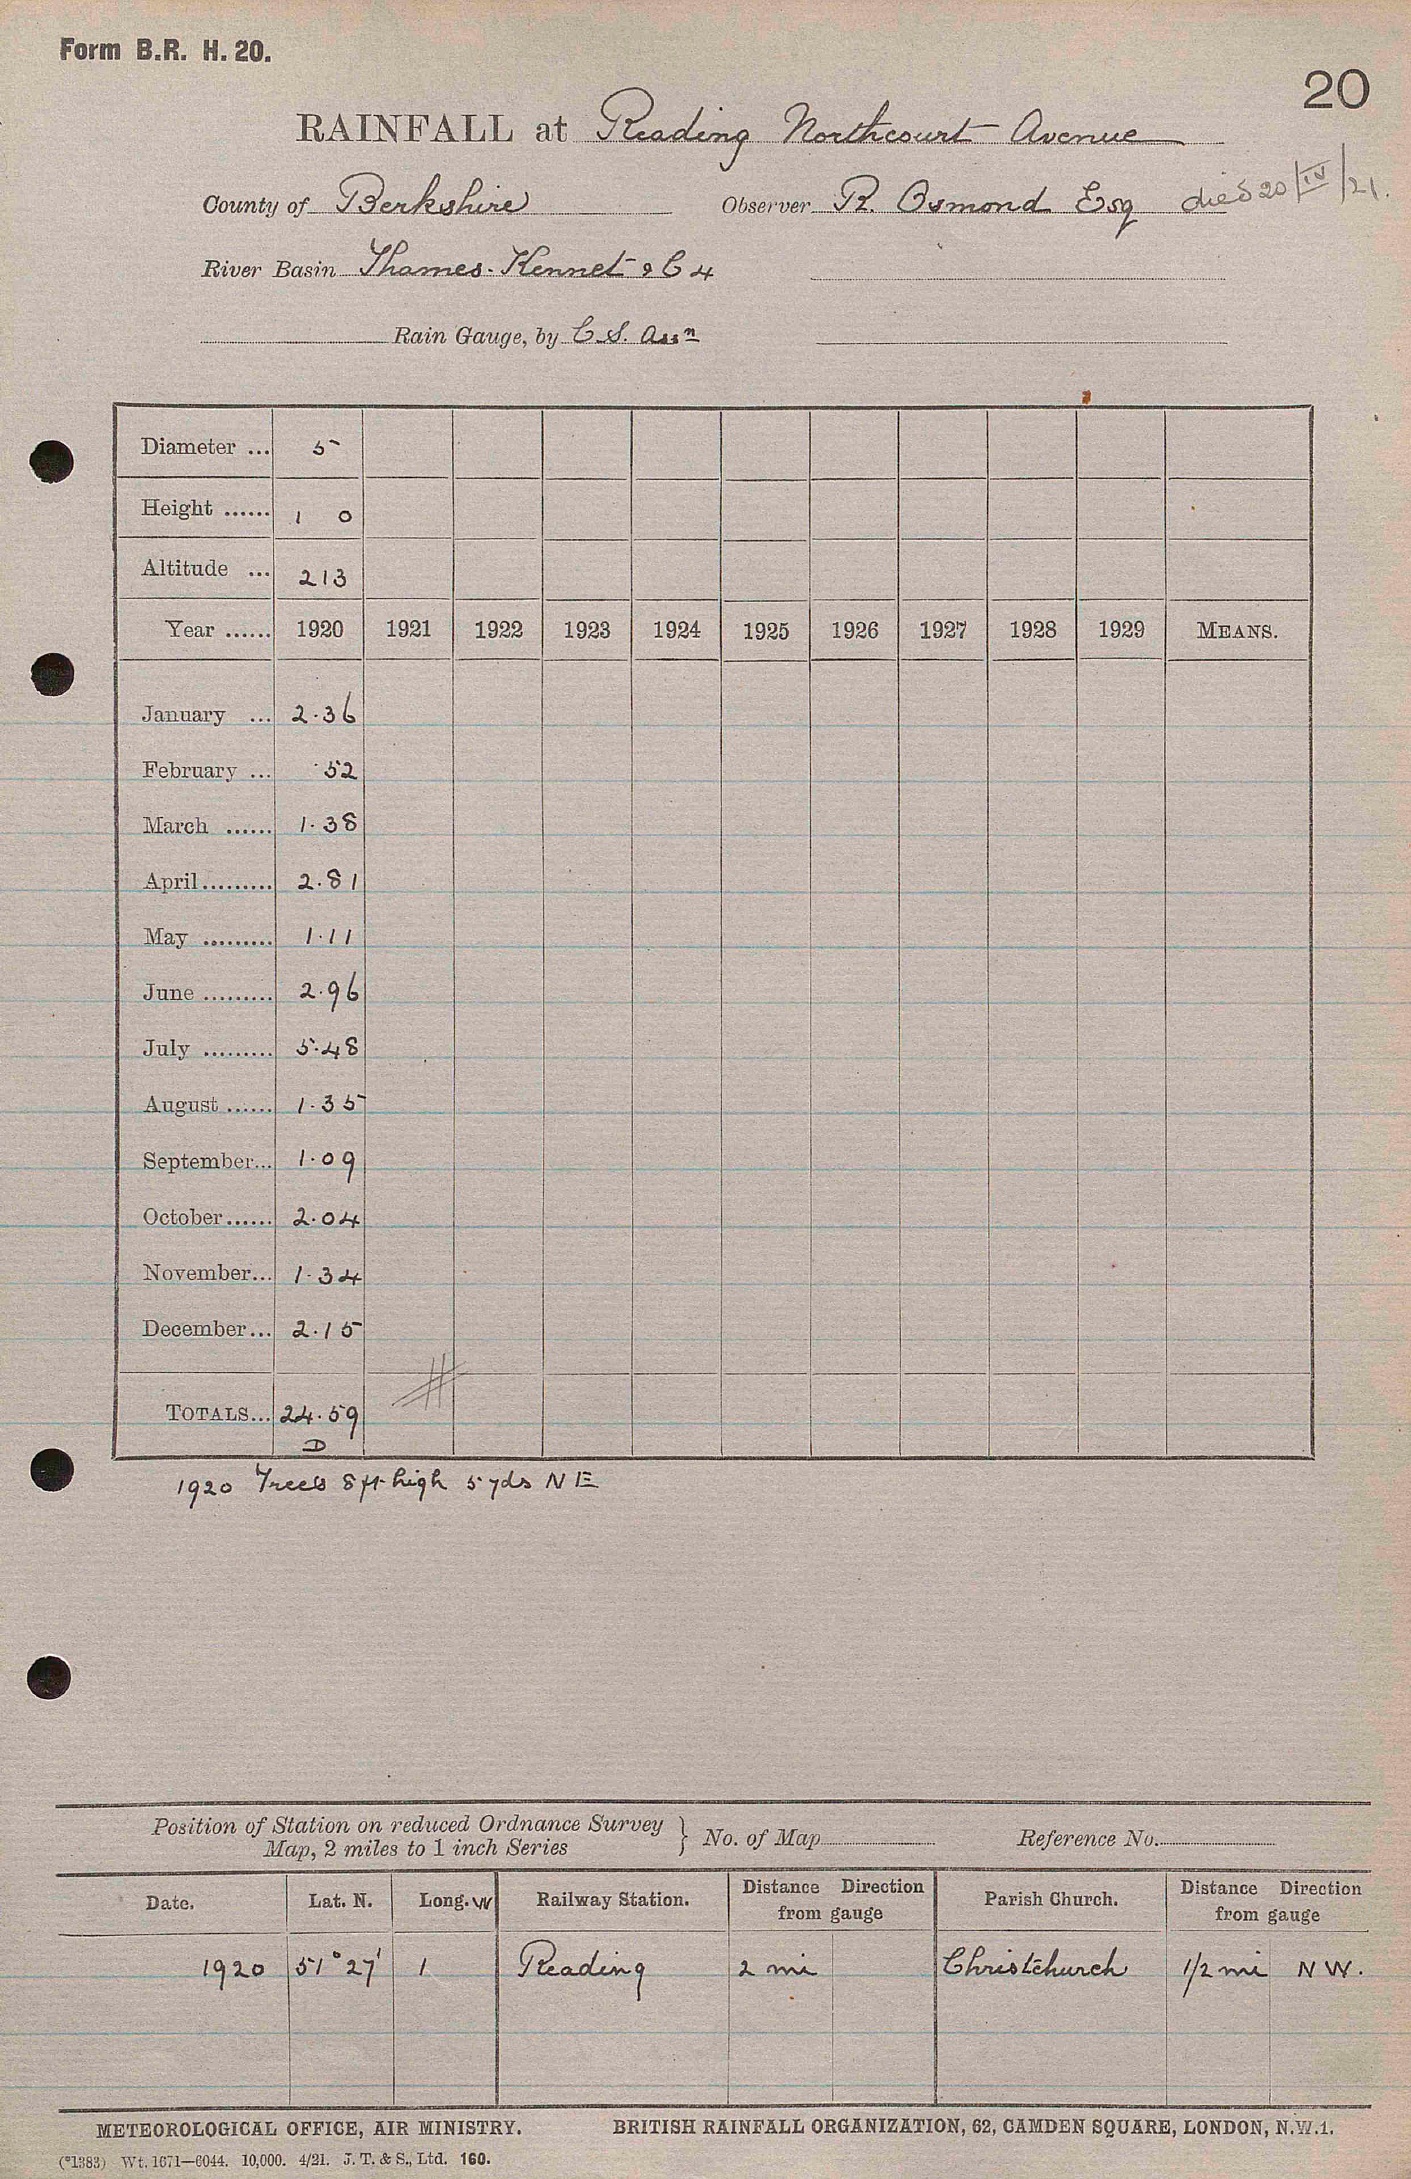 Form B.R. H. 20.
20
RAINFALL at Reading Northcourt Avenue
County of Berkshire Observer R. Osmond Esq died 20/IV/21.
River Basin Thames-Kennet & C 4
Rain Gauge, by C.S. Assn
Diameter ... 5
Height ...... 1 0
Altitude ... 213
Year ...... 1920 1921 1922 1923 1924 1925 1926 1927 1928 1929 MEANS.
January ... 2.36
February ... .52
March ...... 1.38
April......... 2.81
May ......... 1.11
June ......... 2.96
July ......... 5.48
August ...... 1.35
September... 1.09
October...... 2.04
November... 1.34
December... 2.15
TOTALS... 24.59
D
1920 Trees 8 ft high 5 yds N E
Position of Station on reduced Ordnance Survey Map, 2 miles to 1 inch Series } No. of Map Reference No.
Date. Lat. N. Long. W Railway Station. Distance Direction from gauge Parish Church. Distance Direction from gauge
1920 51° 27' 1 Reading 2 mi Christchurch 1/2 mi N W.
METEOROLOGICAL OFFICE, AIR MINISTRY. BRITISH RAINFALL ORGANIZATION, 62, CAMDEN SQUARE, LONDON, N.W.1.
(*1383) Wt. 1671—6044. 10,000. 4/21. J. T. & S., Ltd. 160.